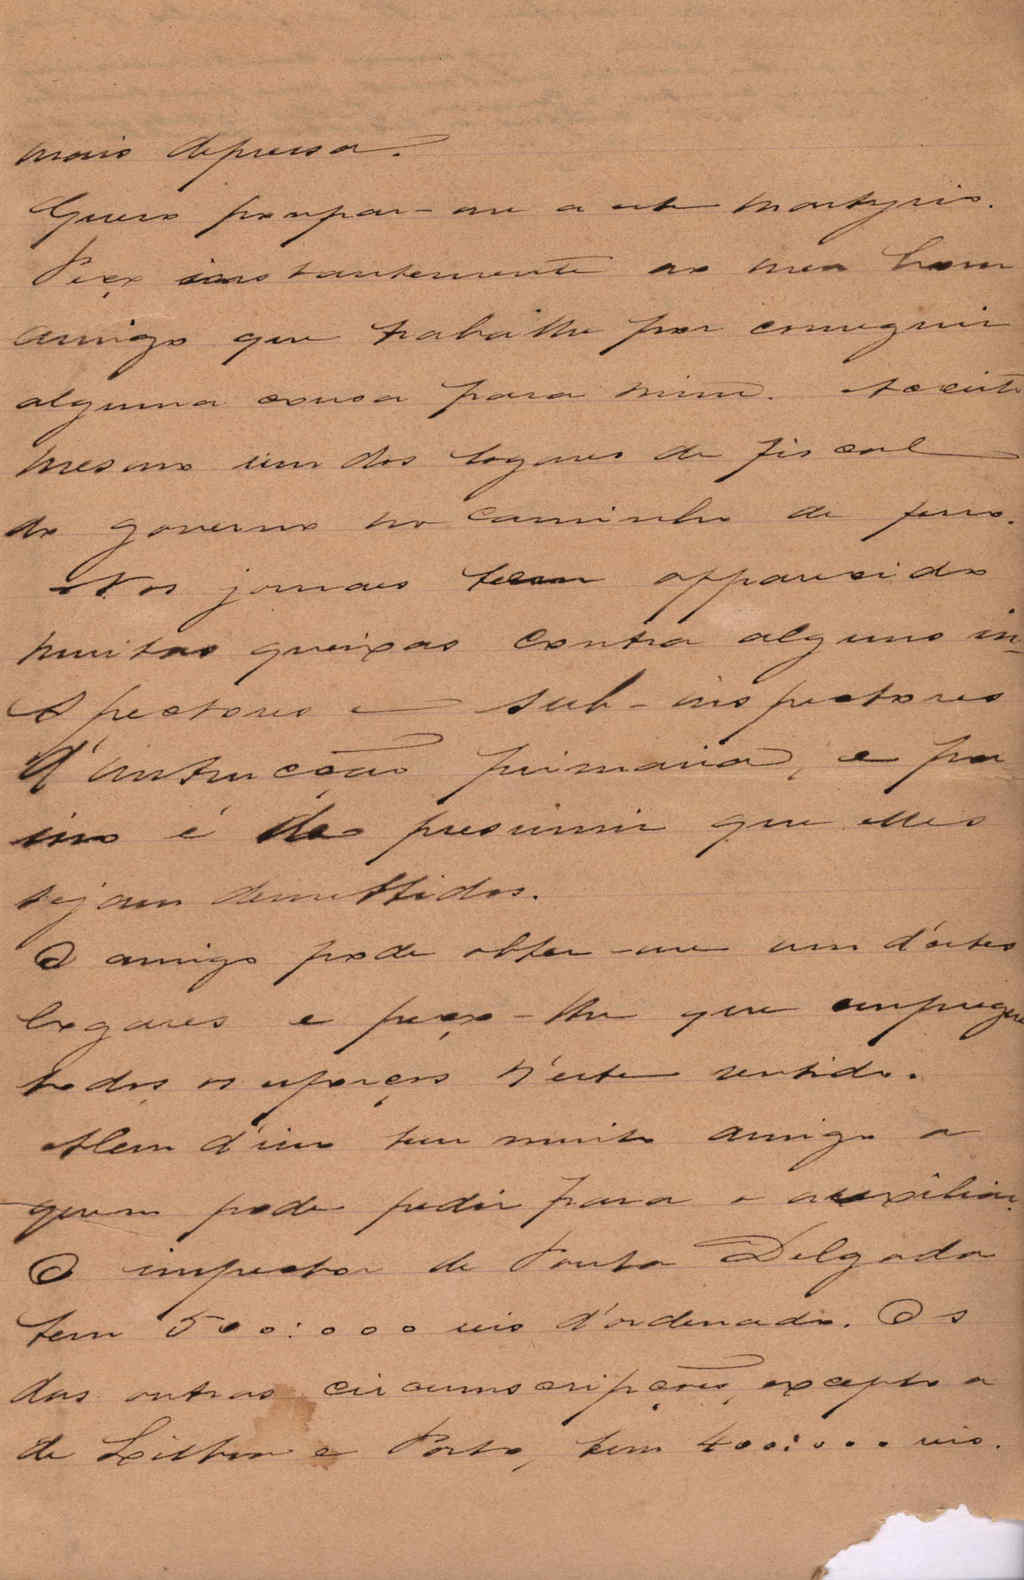 mais depressa.
Quero poupar-me a este martyrio.
Peço instantemente ao meu bom
amigo que trabalhe por conseguir
alguma cousa para mim. Acceito
mesmo um dos logares de fiscal
do governo no caminho de ferro.
Nos jornaes tem apparecido
muitas queixas contra alguns in-
spectores e sub-inspectores
d'instrucção primaria, e por
isso é de presumir que elles
sejam demittidos.
O amigo pode obter-me um d'estes
logares e peço-lhe que empregue
todos os esforços n'este sentido.
Alem d'isso tem muito amigo a
quem pode pedir para o auxiliar.
O inspector de Ponta Delgada
tem 500:000 reis d'ordenado. Os
das outras circumscripções, excepto a
de Lisboa e Porto, tem 400:000 reis.